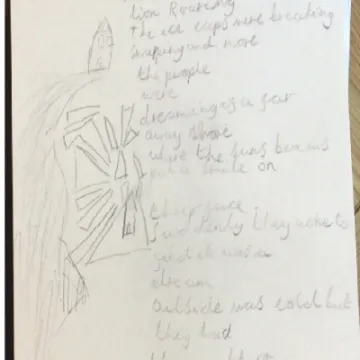 lion Roaring
the ice caps were breaking
snapping and more
the people
were
dreaming of a far
away shore
where the suns beams
put a smile on
their face.
Suddenly they woke to
find it was a
dream
outside was cold but
they had